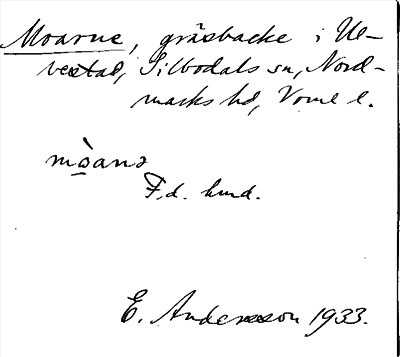 Moarne, gräsbacke i Ul-
vestad, Silbodals sn, Nord-
marks hd, Vrml l.
mòanə
F.d. lund.
E. Andersson 1933.